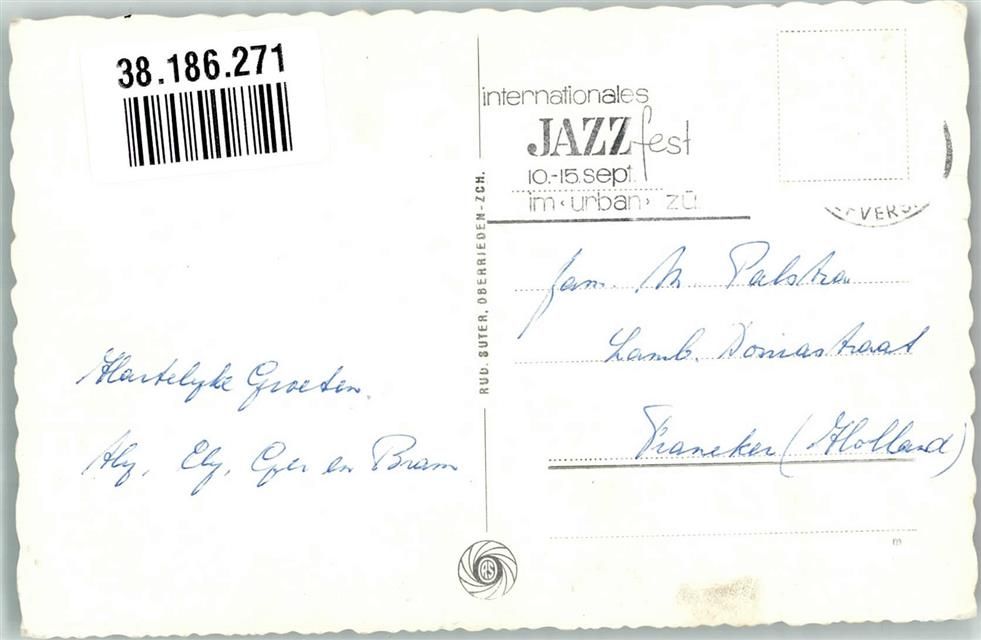 38.186.271
internationales
JAZZ fest
10.-15. sept.
im ‹urban› zü
VERS
RUD. SUTER, OBERRIEDEN-ZCH.
fam. M. Palstra
Lamb. Doniastraat
Franeker (Holland)
Hartelyke Groeten.
Aly, Ely, Ger en Bram
RS